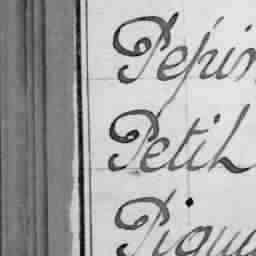 Pepin
Petit
Piqu